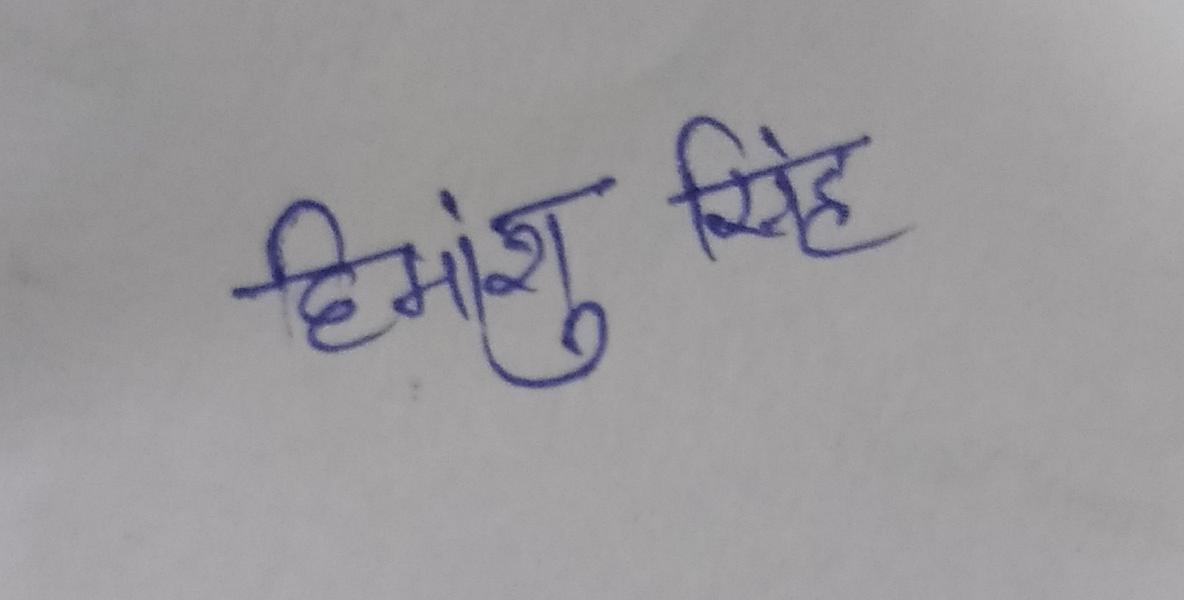 हिमांशु सिंह